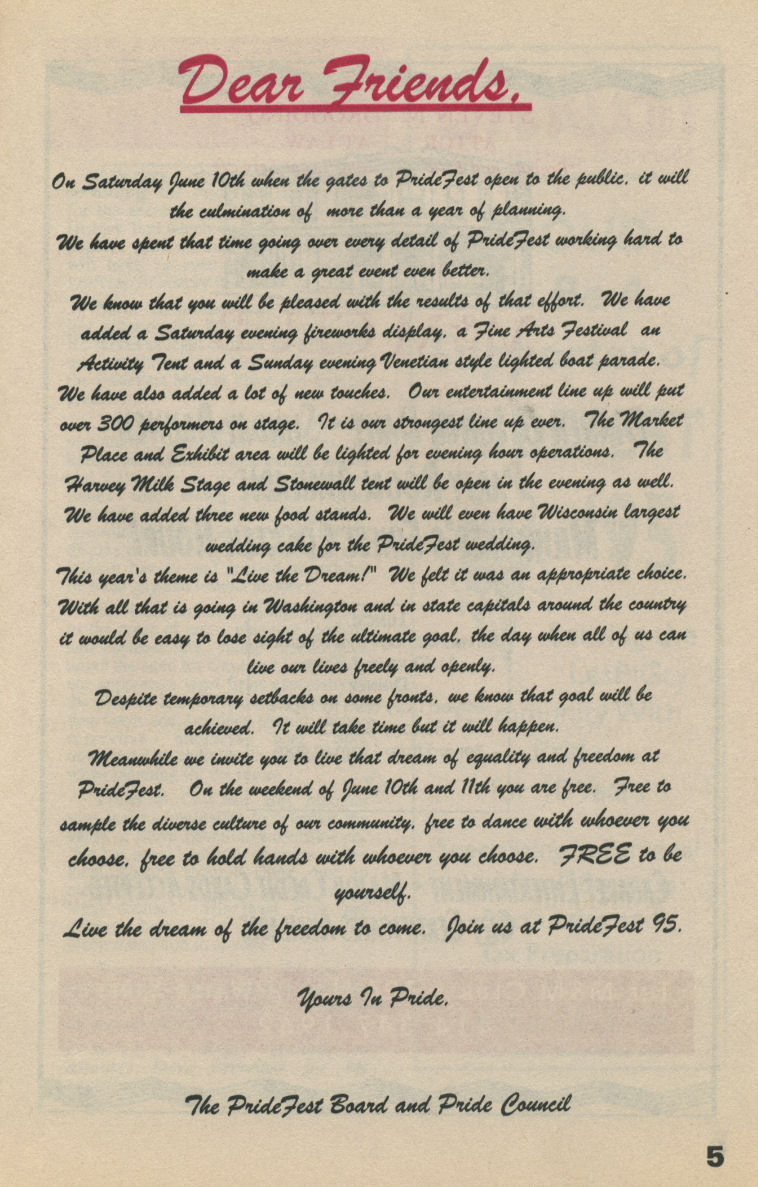 Dear Friends,
On Saturday June 10th when the gates to PrideFest open to the public, it will
the culmination of more than a year of planning.
We have spent that time going over every detail of PrideFest working hard to
make a great event even better.
We know that you will be pleased with the results of that effort. We have
added a Saturday evening fireworks display, a Fine Arts Festival an
Activity Tent and a Sunday evening Venetian style lighted boat parade.
We have also added a lot of new touches. Our entertainment line up will put
over 300 performers on stage. It is our strongest line up ever. The Market
Place and Exhibit area will be lighted for evening hour operations. The
Harvey Milk Stage and Stonewall tent will be open in the evening as well.
We have added three new food stands. We will even have Wisconsin largest
wedding cake for the PrideFest wedding.
This year's theme is "Live the Dream!" We felt it was an appropriate choice.
With all that is going in Washington and in state capitals around the country
it would be easy to lose sight of the ultimate goal, the day when all of us can
live our lives freely and openly.
Despite temporary setbacks on some fronts, we know that goal will be
achieved. It will take time but it will happen.
Meanwhile we invite you to live that dream of equality and freedom at
PrideFest. On the weekend of June 10th and 11th you are free. Free to
sample the diverse culture of our community, free to dance with whoever you
choose, free to hold hands with whoever you choose. FREE to be
yourself.
Live the dream of the freedom to come. Join us at PrideFest 95.
Yours In Pride,
The PrideFest Board and Pride Council
5